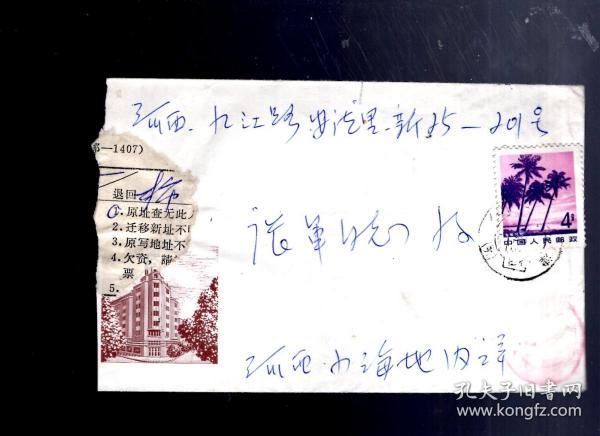 河西.九江路.安汉里.新25—201号
部—1407)
退回
①.原址查无此人
2.迁移新址不
3.原写地址不
4.欠资,
票
5.
张革
收
4分
中国人民邮政
河西小海地内详
孔夫子旧书网
www.kongfz.com